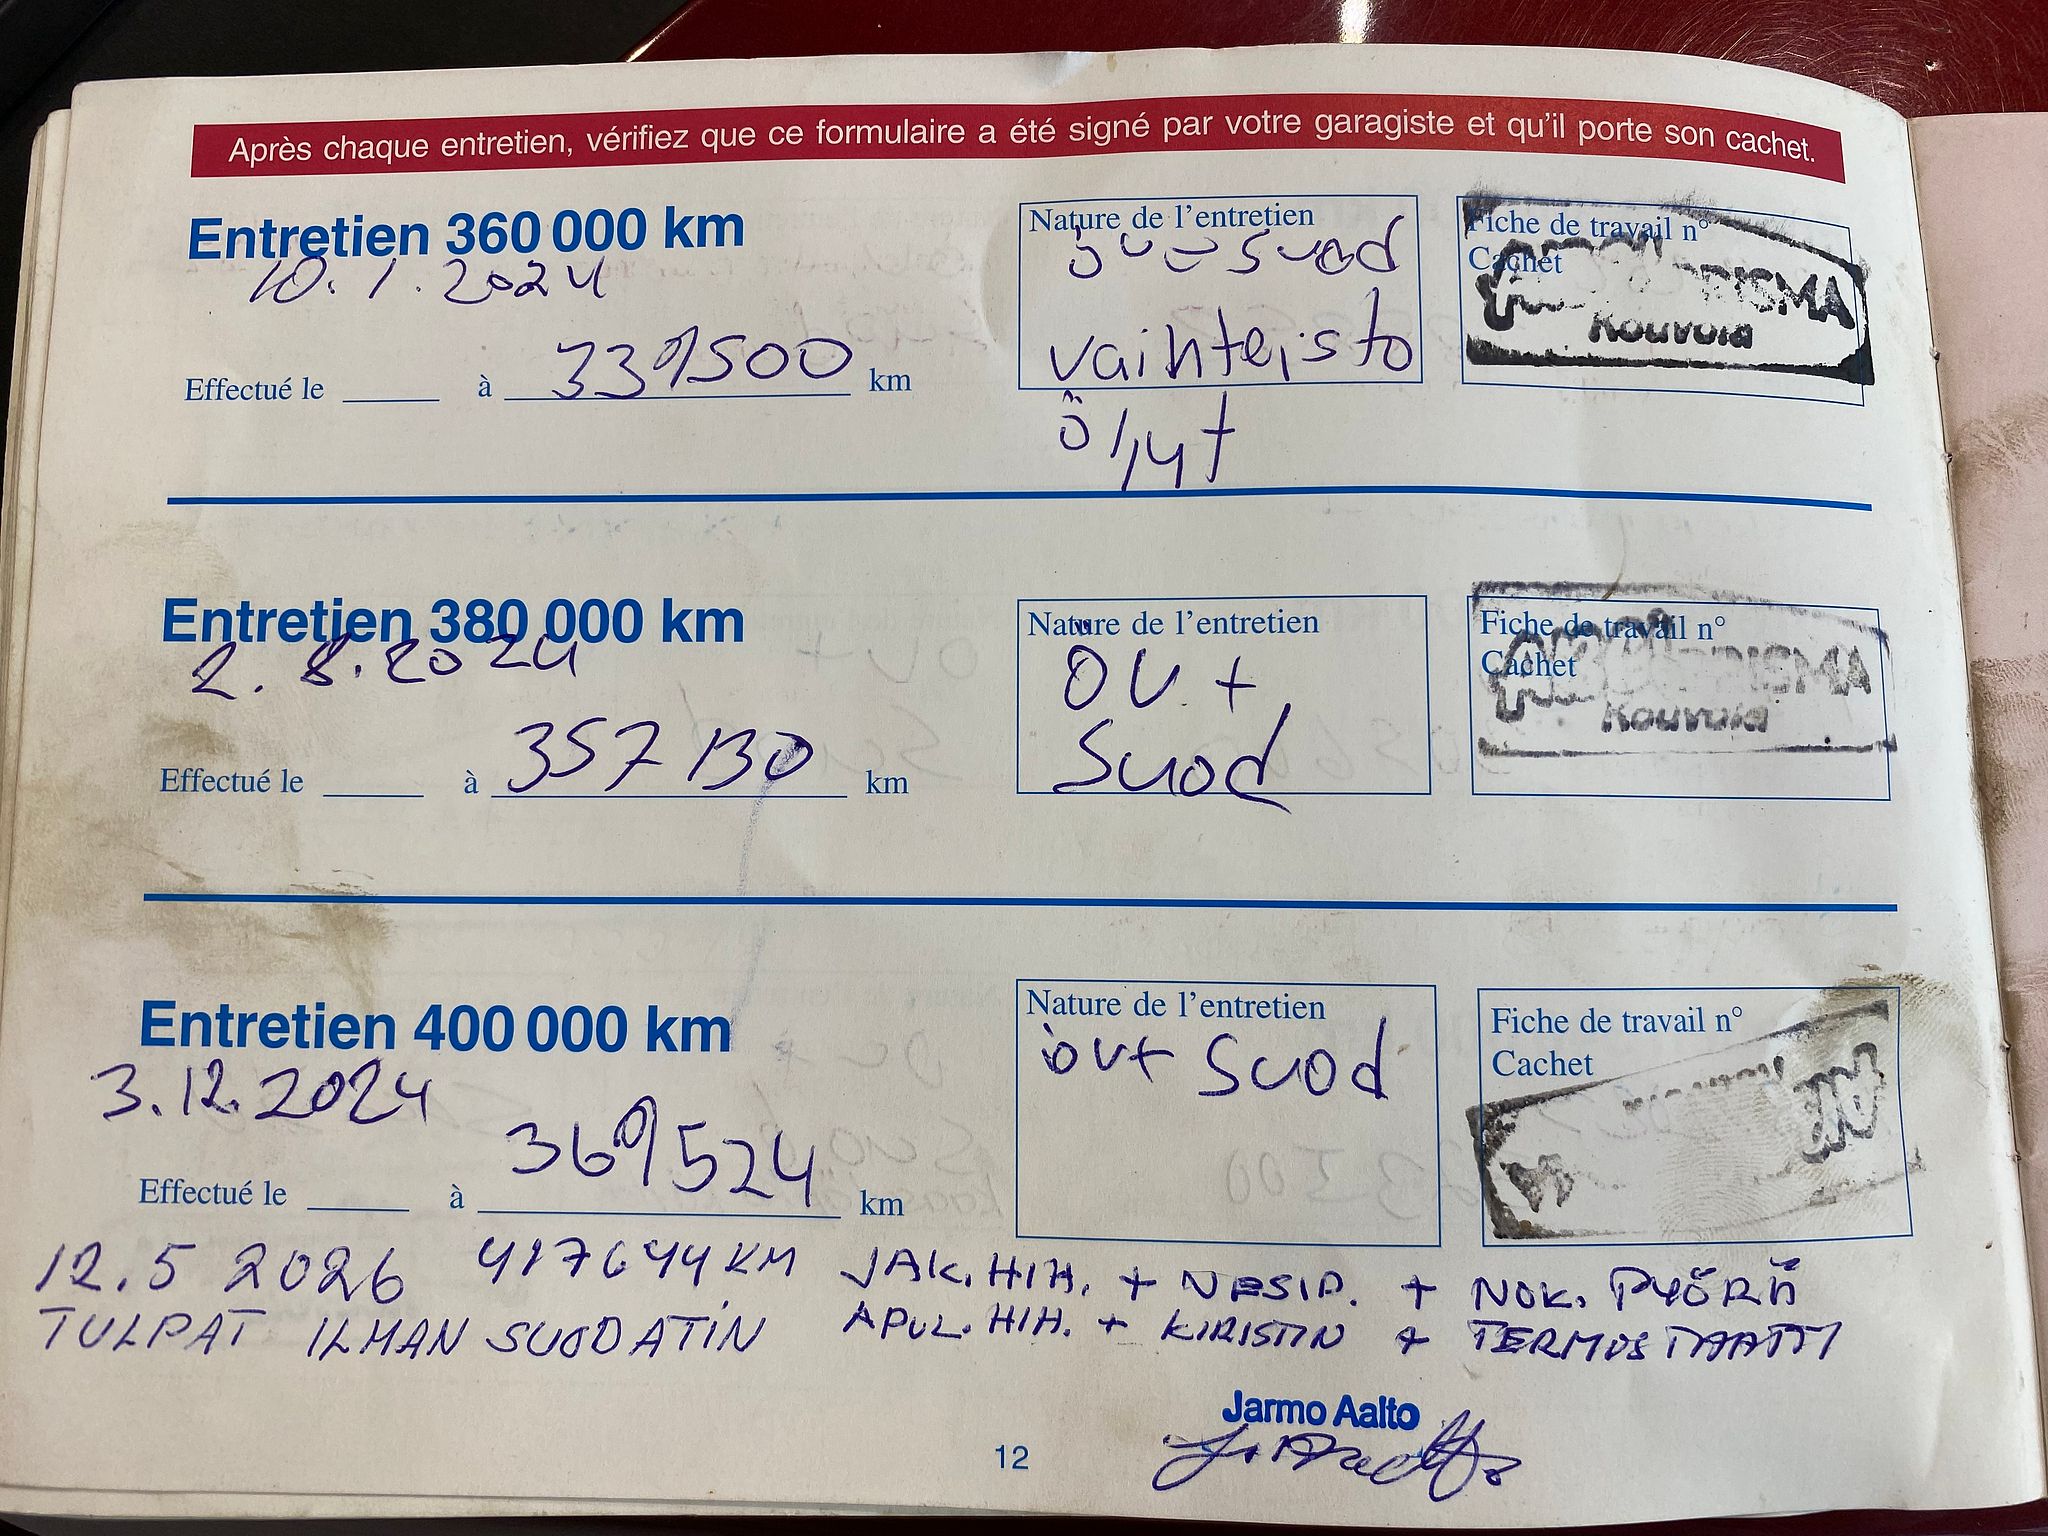 Après chaque entretien, vérifiez que ce formulaire a été signé par votre garagiste et qu'il porte son cachet.
Entretien 360 000 km
10.1.2024
Effectué le à 339500 km
Nature de l'entretien
suod
vaihteisto
öljyt
Fiche de travail n°
Cachet
Kouvola
Entretien 380 000 km
2.8.2024
Effectué le à 357130 km
Nature de l'entretien
öv +
Suod
Fiche de travail n°
Cachet
Kouvola
Entretien 400 000 km
3.12.2024
Effectué le à 369524 km
Nature de l'entretien
öv+ Suod
Fiche de travail n°
Cachet
12.5 2026 417644 KM JAK.HIH. + VESIP. + NOK. PYÖRÄ
TULPAT ILMAN SUODATIN APUL.HIH. + KIRISTIN + TERMOSTAATTI
Jarmo Aalto
12